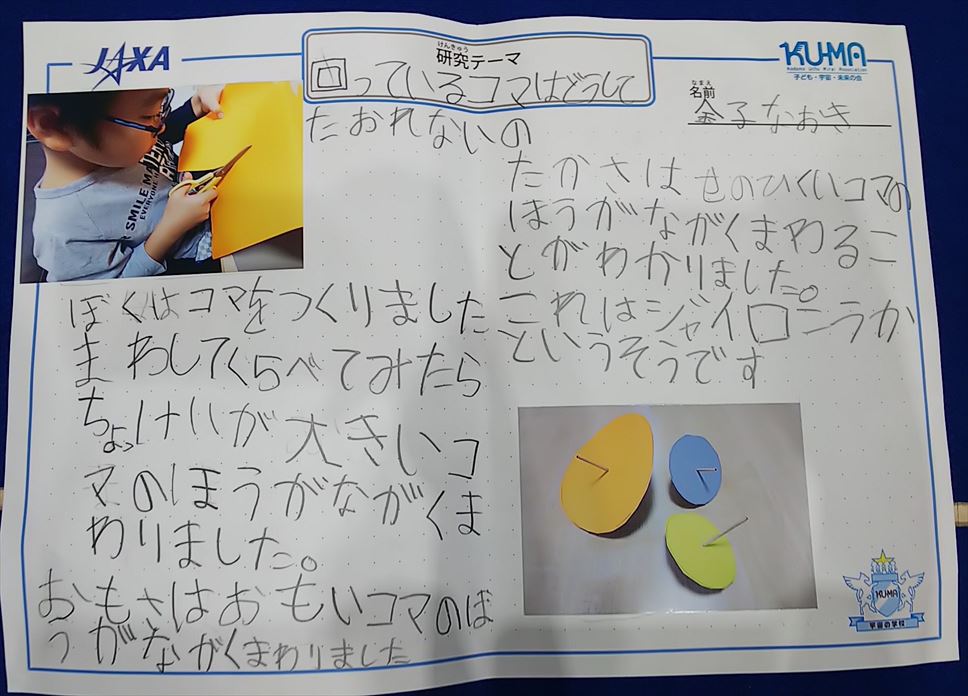 JAXA
けんきゅう
研究テーマ
回っているコマはどうして
たおれないの
KU-MA
Kodomo Uchu Mirai Association
子ども・宇宙・未来の会
なまえ
名前
金子なおき
SMILE MA
EVERYONE H
ぼくはコマをつくりました
まわしてくらべてみたら
ちょっけいが大きいコ
マのほうがながくま
わりました。
おもさはおもいコマのほ
うがながくまわりました
たかさはせのひくいコマの
ほうがながくまわるこ
とがわかりました。
これはジャイロこうか
というそうです
KUMA
宇宙の学校